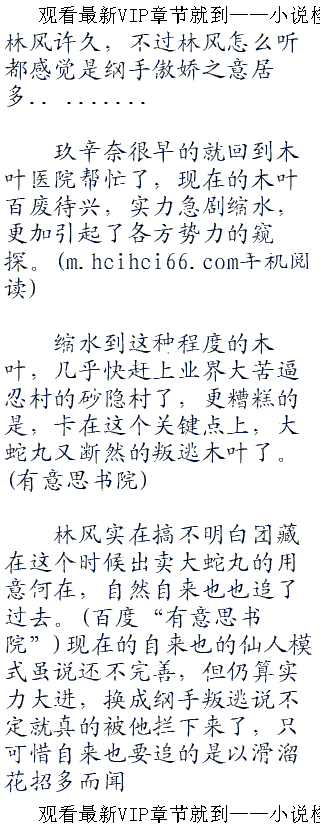 观看最新VIP章节就到——小说检
林风许久，不过林风怎么听
都感觉是纲手傲娇之意居
多．．．．．．．．．
玖辛奈很早的就回到木
叶医院帮忙了，现在的木叶
百废待兴，实力急剧缩水，
更加引起了各方势力的窥
探。(m.hcihci66.com手机阅
读)
缩水到这种程度的木
叶，几乎快赶上业界大苦逼
忍村的砂隐村了，更糟糕的
是，卡在这个关键点上，大
蛇丸又断然的叛逃木叶了。
(有意思书院)
林风实在搞不明白团藏
在这个时候出卖大蛇丸的用
意何在，自然自来也也追了
过去。(百度“有意思书
院”)现在的自来也的仙人模
式虽说还不完善，但仍算实
力大进，换成纲手叛逃说不
定就真的被他拦下来了，只
可惜自来也要追的是以滑溜
花招多而闻
观看最新VIP章节就到——小说检